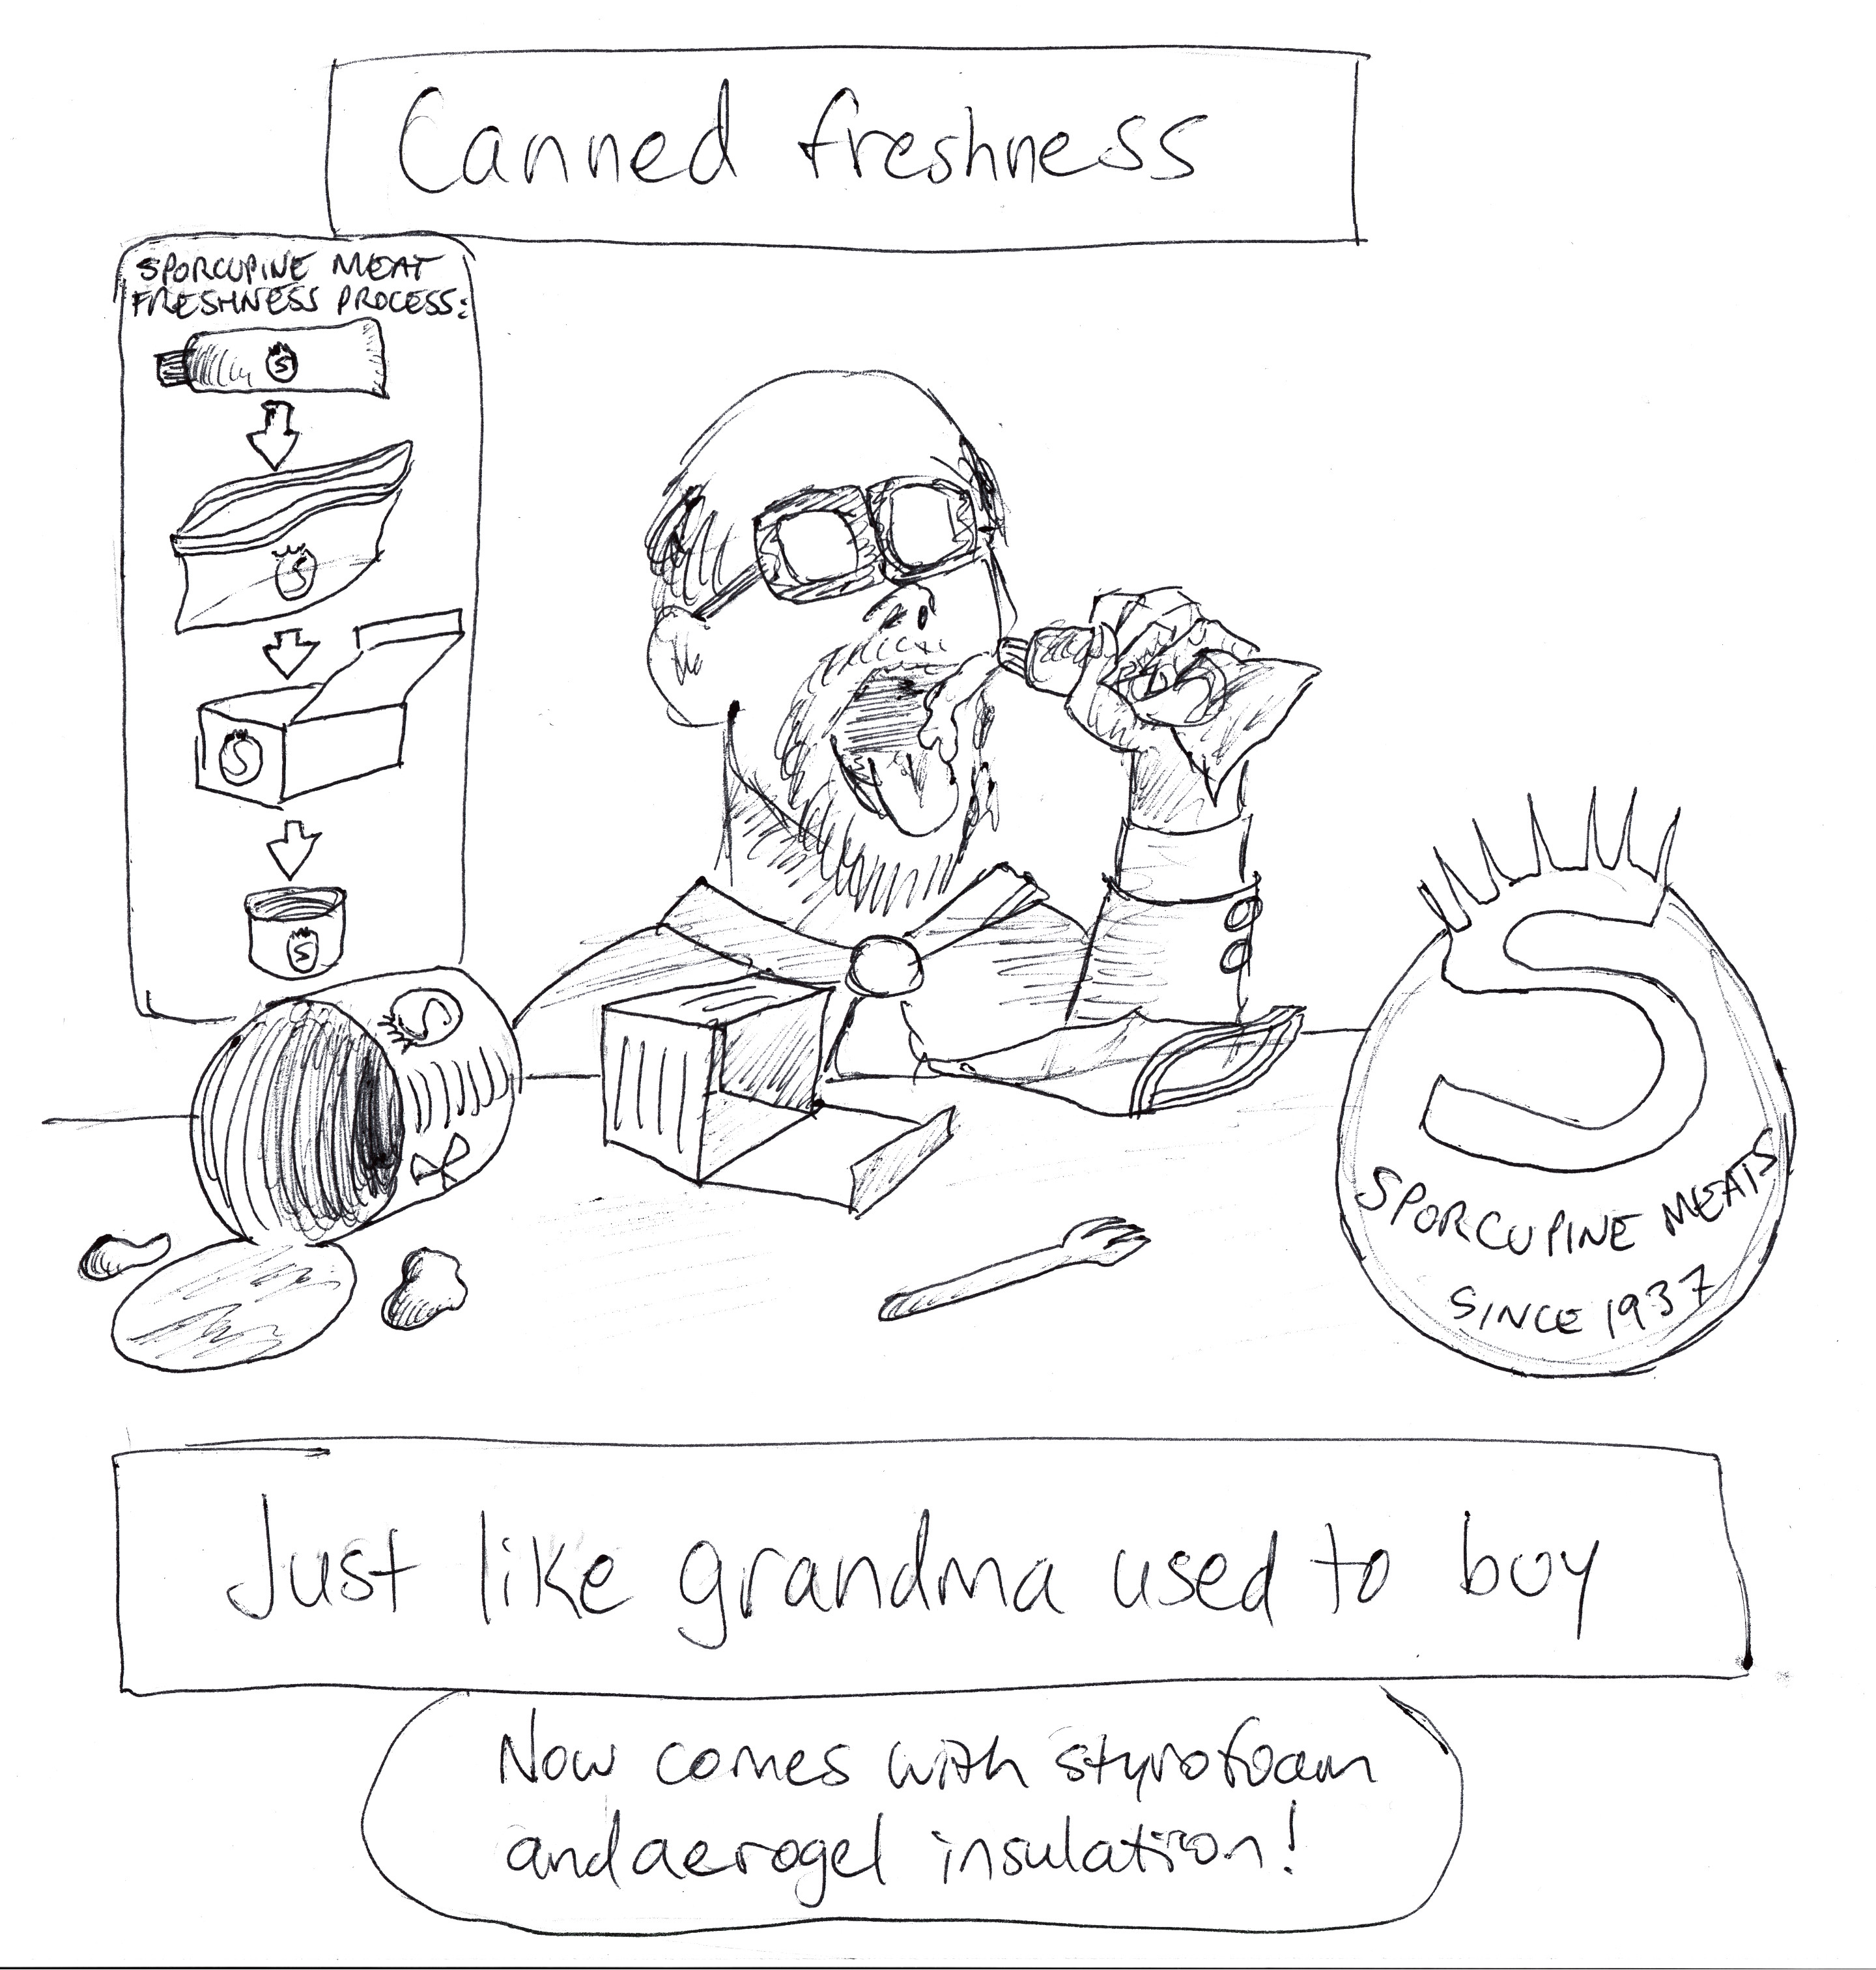 Canned freshness
SPORCUPINE MEAT
FRESHNESS PROCESS:
S
S
S
S
S
S
SPORCUPINE MEATS
SINCE 1937
Just like grandma used to buy
Now comes with styrofoam
and aerogel insulation!